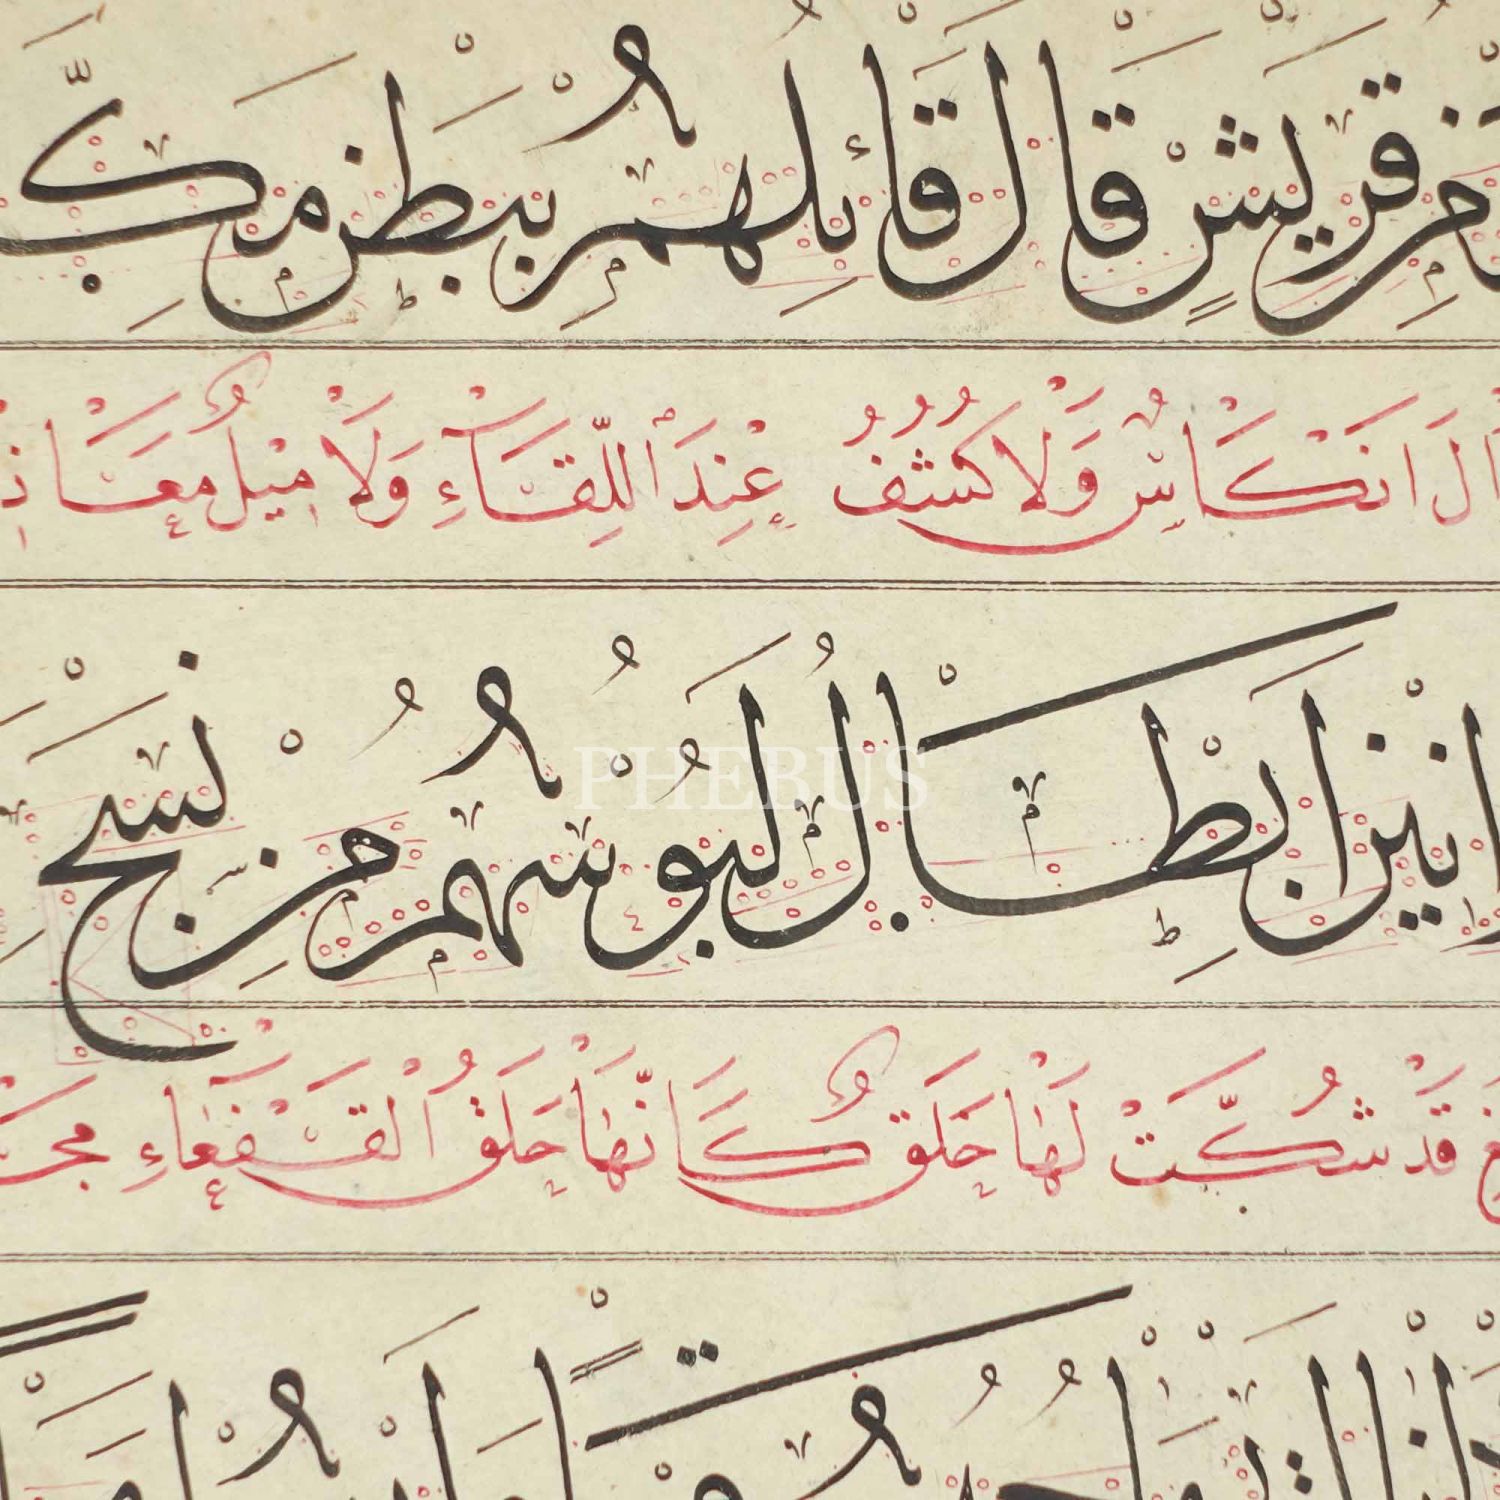 مِنْ قُرَيْشٍ قَالَ قَائِلُهُمْ بِبَطْنِ مَكَّ
ال اَنْكَاسٌ وَلَا كُشُفٌ عِنْدَ اللِّقَاءِ وَلَا مِيْلٌ مَعَاذ
انِيْنِ اَبْطَالٌ لَبُوْسُهُمْ مِنْ نَسْجِ
PHEBUS
غ قَدْ شُكَّتْ لَهَا حَلَقٌ كَاَنَّهَا حَلَقُ الْقَفْعَاءِ مَجْ